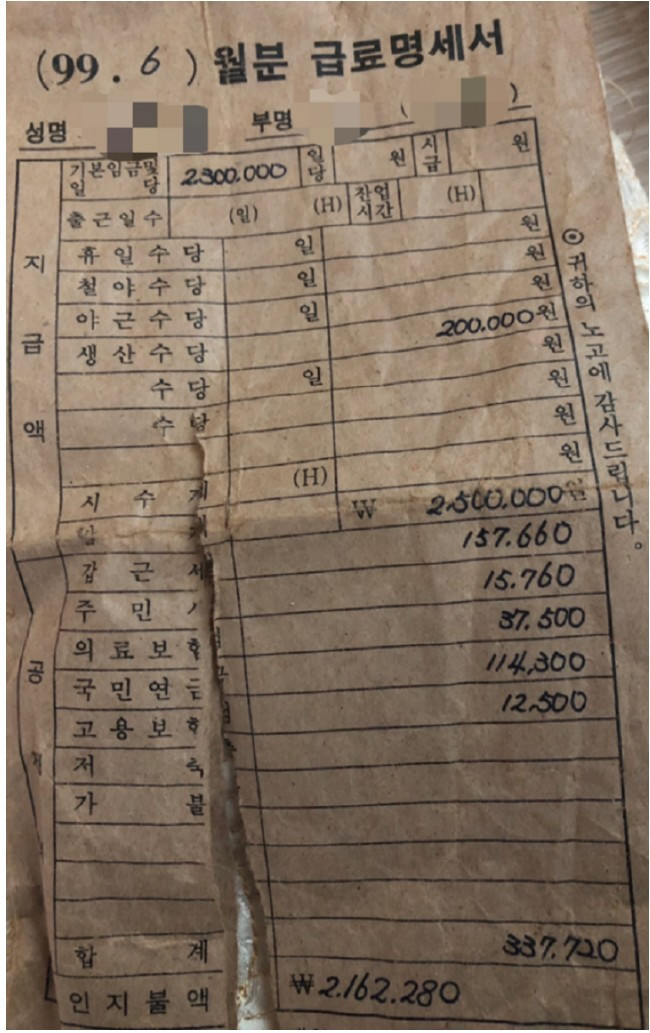 (99. 6) 월분 급료명세서
성명 부명 ( )
지급액
기본임금및일당 2.300,000 일당 원 시급 원
출근일수 (일) (H) 잔업시간 (H)
휴일수당 일 원
철야수당 일 원
야근수당 일 원
생산수당 200.000원
수당 일 원
수당 원
원
시수계 (H) 원
₩ 2.500.000원
갑근세 157.660
주민 15.760
의료보험 37.500
국민연금 114,300
고용보험 12,500
저축
가불
합계 337.720
인지불액 ₩2.162.280
◎ 귀하의 노고에 감사드립니다.